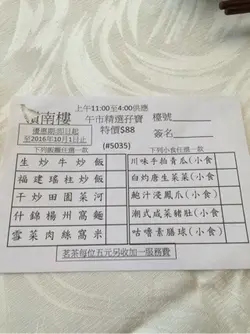 南樓
上午11:00至4:00供應
午市精選孖寶
特價$88
(#5035)
檯號
簽名
優惠期:即日起
至2016年10月1日止
下列飯麵任選一款
下列小食任選一款
生炒牛崧飯
川味手拍青瓜(小食)
福建瑤柱炒飯
白灼唐生菜菜(小食
干炒田園菜河
鮑汁浸鳳爪(小食)
什錦楊州窩麵
潮式咸菜豬肚(小食
雪菜肉絲窩米
咕嚕素膳球(小食)
茗茶每位五元另收加一服務費